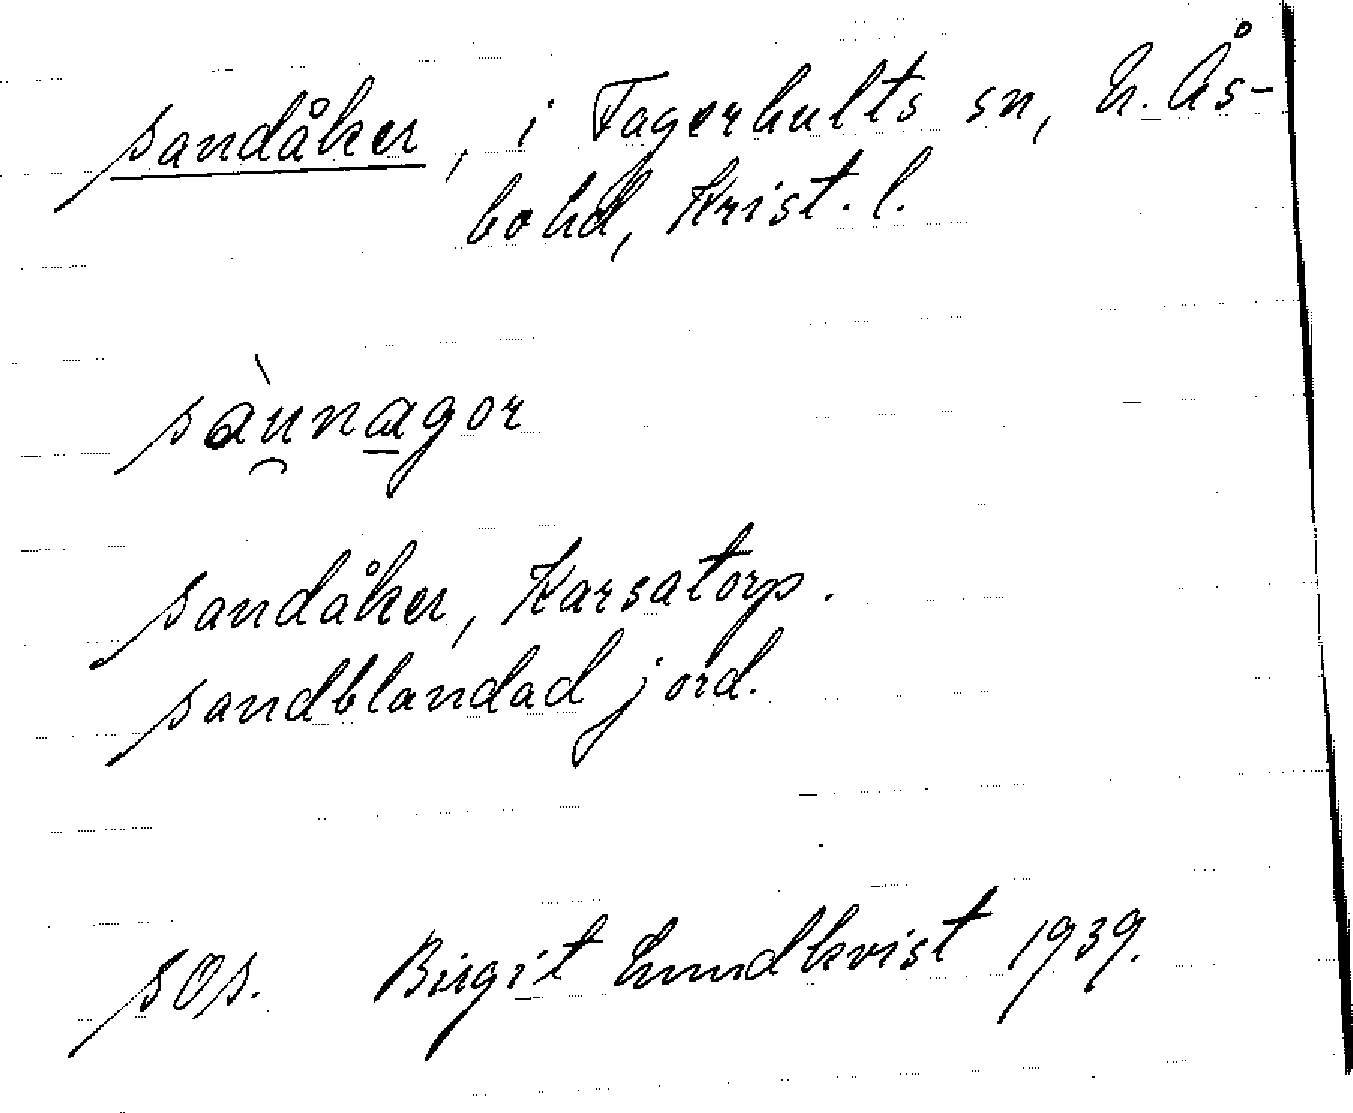 sandåker, i Fagerhults sn, N. Ås-
bo hd, Krist. l.
sàu̯nagor
sandåker, Karsatorp.
sandblandad jord.
sOs. Birgit Lundkvist 1939.